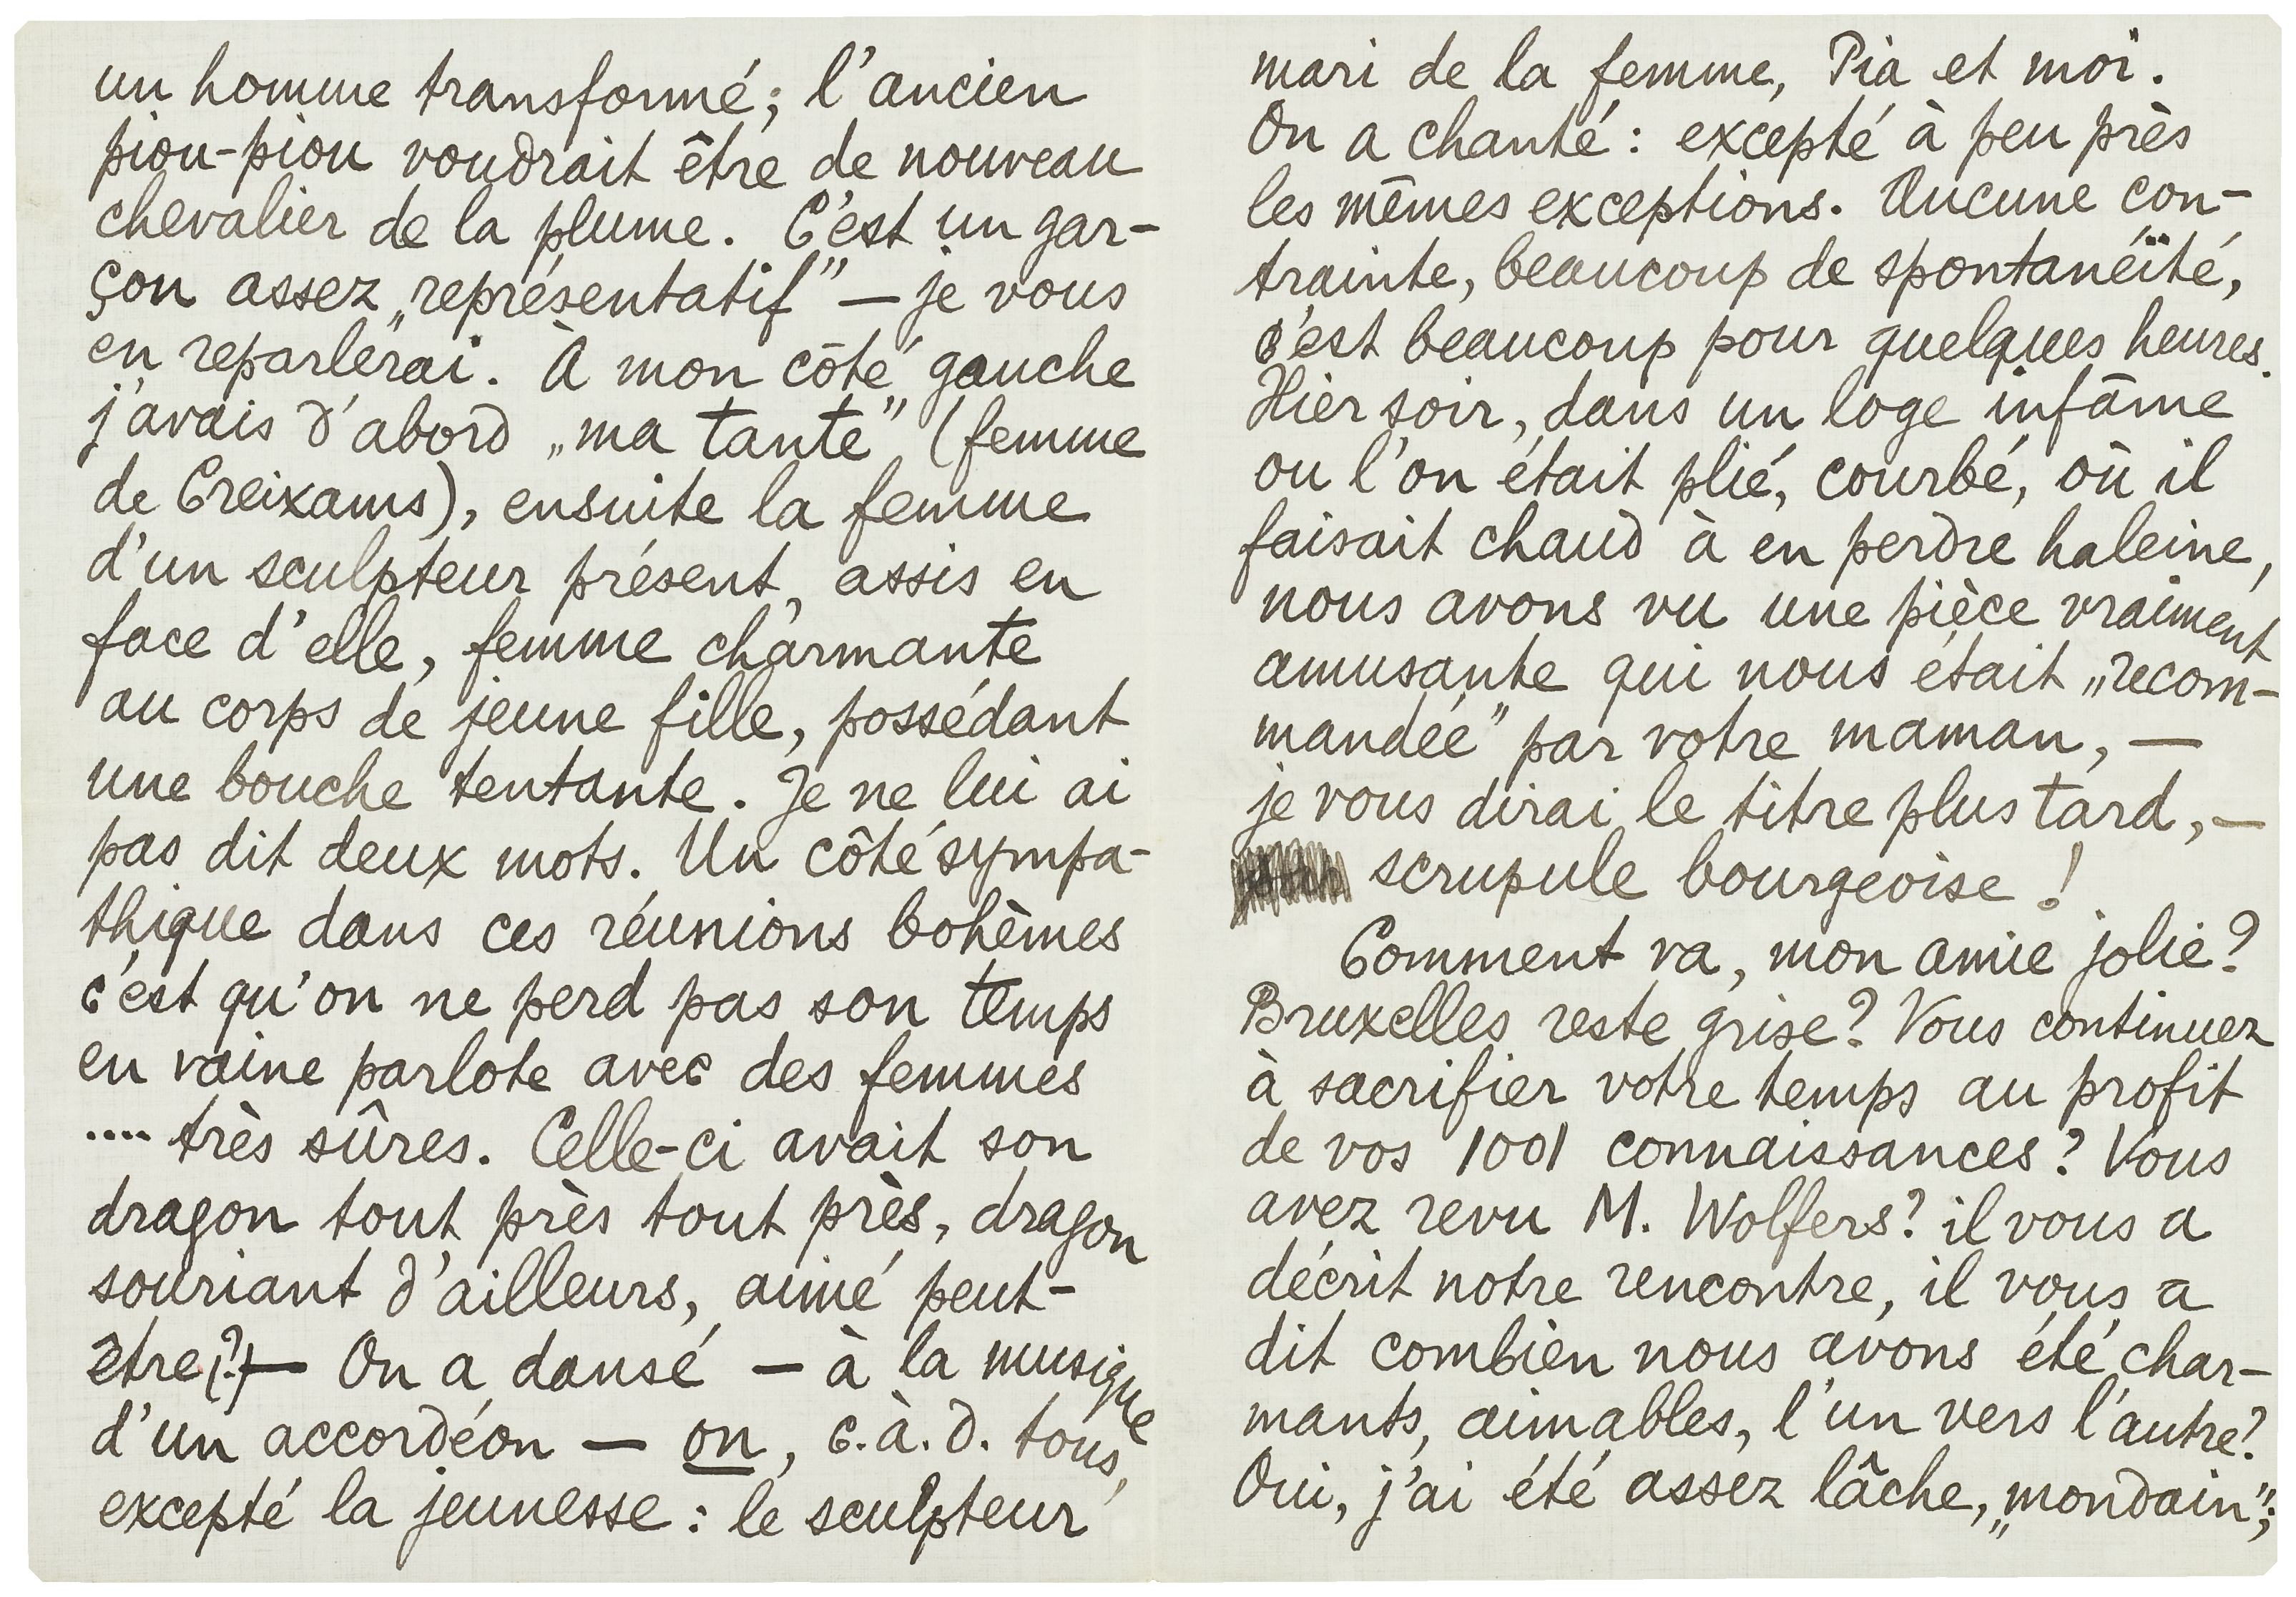 un homme transformé; l'ancien
piou-piou voudrait être de nouveau
chevalier de la plume. C'est un gar-
çon assez „représentatif” — je vous
en reparlerai. À mon côté gauche
j'avais d'abord „ma tante” (femme
de Creixams), ensuite la femme
d'un sculpteur présent, assis en
face d'elle, femme charmante
au corps de jeune fille, possédant
une bouche tentante. Je ne lui ai
pas dit deux mots. Un côté sympa-
thique dans ces réunions bohèmes
c'est qu'on ne perd pas son temps
en vaine parlote avec des femmes
.... très sûres. Celle-ci avait son
dragon tout près tout près, dragon
souriant d'ailleurs, aimé peut-
être(?) — On a dansé — à la musique
d'un accordéon — on, c.à.d. tous,
excepté la jeunesse: le sculpteur
mari de la femme, Pia et moi.
On a chanté: excepté à peu près
les mêmes exceptions. Aucune con-
trainte, beaucoup de spontanéïté,
c'est beaucoup pour quelques heures.
Hier soir, dans un loge infâme
ou l'on était plié, courbé, où il
faisait chaud à en perdre haleine,
nous avons vu une pièce vraiment
amusante qui nous était „recom-
mandée” par votre maman, —
je vous dirai le titre plus tard, —
scrupule bourgeoise!
Comment va, mon amie jolie?
Bruxelles reste grise? Vous continuez
à sacrifier votre temps au profit
de vos 1001 connaissances? Vous
avez revu M. Wolfers? il vous a
décrit notre rencontre, il vous a
dit combien nous avons été char-
mants, aimables, l'un vers l'autre?
Oui, j'ai été assez lâche, „mondain”;